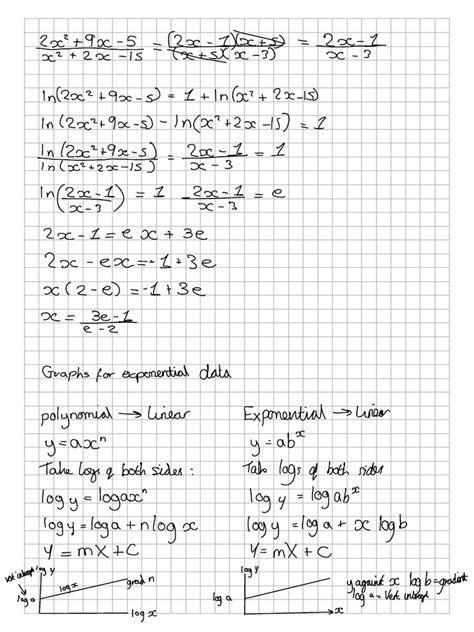 2x² + 9x - 5 / x² + 2x - 15 = (2x - 1)(x + 5) / (x + 5)(x - 3) = 2x - 1 / x - 3
ln(2x² + 9x - 5) = 1 + ln(x² + 2x - 15)
ln(2x² + 9x - 5) - ln(x² + 2x - 15) = 1
ln(2x² + 9x - 5) / ln(x² + 2x - 15) = 2x - 1 / x - 3 = 1
ln(2x - 1 / x - 3) = 1 2x - 1 / x - 3 = e
2x - 1 = e x + 3e
2x - ex = -1 + 3e
x (2 - e) = -1 + 3e
x = 3e - 1 / e - 2
Graphs for exponential data
polynomial → Linear
y = axⁿ
Take logs of both sides :
log y = log axⁿ
log y = log a + n log x
Y = mX + C
vert intercept log y
log a
log x
grad n
log x
Exponential → Linear
y = abˣ
Take logs of both sides
log y = log abˣ
log y = log a + x log b
Y = mX + C
log y
log a
x
y against x log b = gradient
log a = Vert intercept